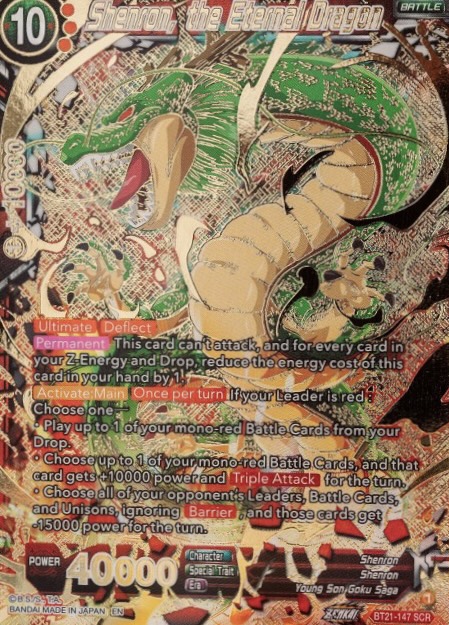 BATTLE
10
Shenron, the Eternal Dragon
10000
Ultimate Deflect
Permanent This card can't attack, and for every card in
your Z-Energy and Drop, reduce the energy cost of this
card in your hand by 1.
Activate:Main Once per turn If your Leader is red :
Choose one—
・Play up to 1 of your mono-red Battle Cards from your
Drop.
・Choose up to 1 of your mono-red Battle Cards, and that
card gets +10000 power and Triple Attack for the turn.
・Choose all of your opponent's Leaders, Battle Cards,
and Unisons, ignoring Barrier, and those cards get
-15000 power for the turn.
POWER 40000
Character Shenron
Special Trait Shenron
Era Young Son Goku Saga
BANDAI MADE IN JAPAN EN
BT21-147 SCR
1